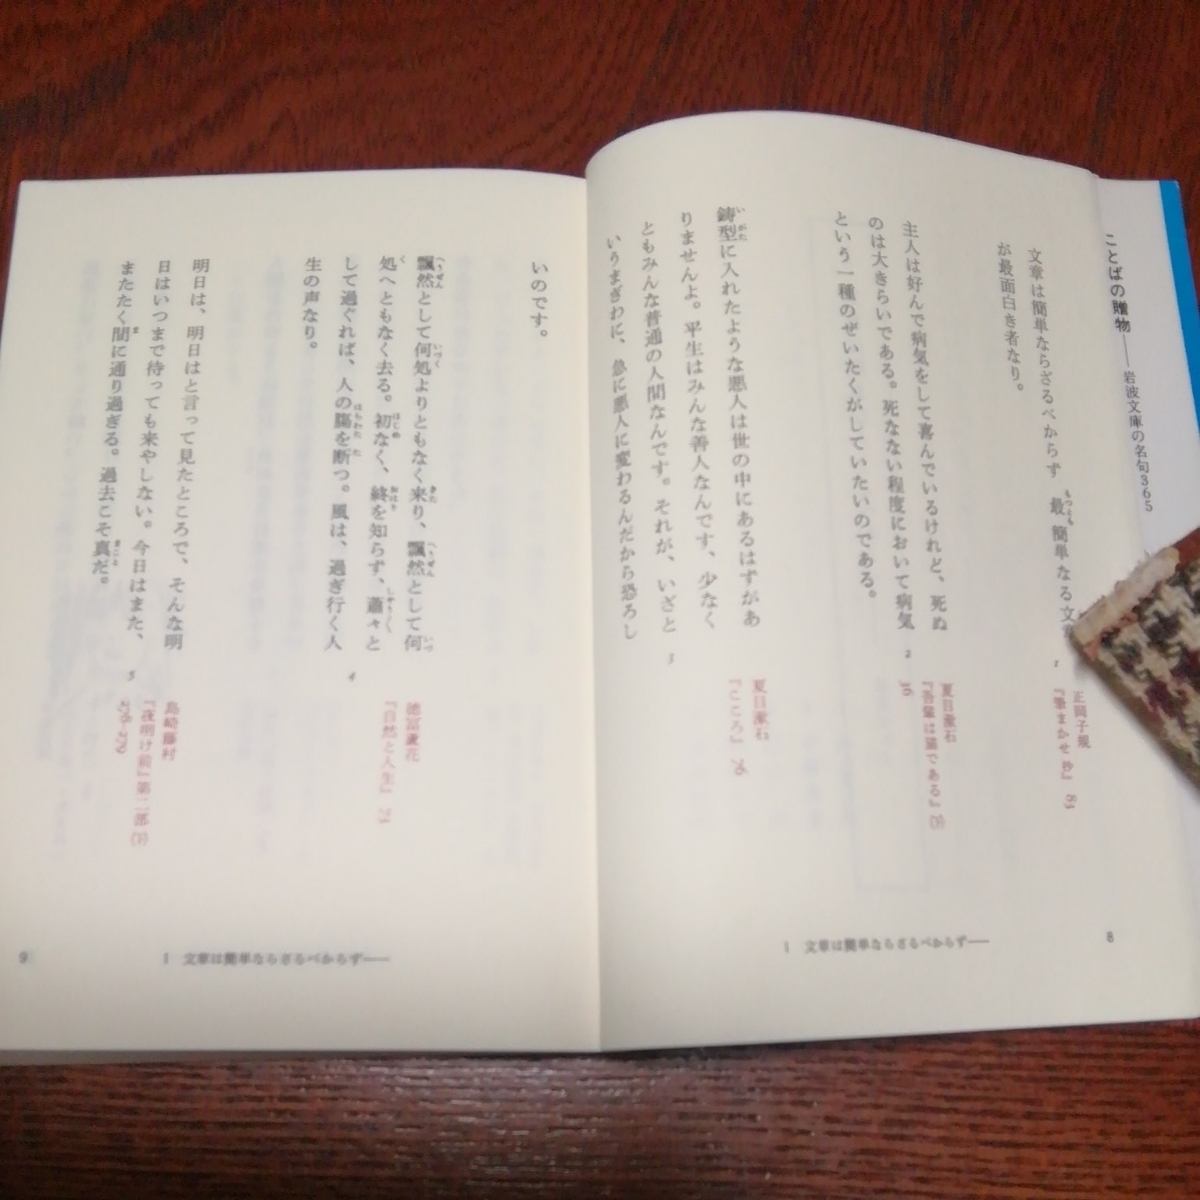 ことばの贈物——岩波文庫の名句365
文章は簡単ならざるべからず 最簡単なる文
が最面白き者なり。
1
正岡子規
『筆まかせ抄』83
主人は好んで病気をして喜んでいるけれど、死ぬ
のは大きらいである。死なない程度において病気
という一種のぜいたくがしていたいのである。
2
夏目漱石
『吾輩は猫である』(下)
16
鋳型に入れたような悪人は世の中にあるはずがあ
りませんよ。平生はみんな善人なんです、少なく
ともみんな普通の人間なんです。それが、いざと
いうまぎわに、急に悪人に変わるんだから恐ろし
3
夏目漱石
『こころ』76
1 文章は簡単ならざるべからず——
8
いのです。
飄然として何処よりともなく来り、飄然として何
処へともなく去る。初なく、終を知らず、蕭々と
して過ぐれば、人の腸を断つ。風は、過ぎ行く人
生の声なり。
4
徳冨蘆花
『自然と人生』73
明日は、明日はと言って見たところで、そんな明
日はいつまで待っても来やしない。今日はまた、
またたく間に通り過ぎる。過去こそ真だ。
5
島崎藤村
『夜明け前』第二部(下)
278-279
1 文章は簡単ならざるべからず——
9